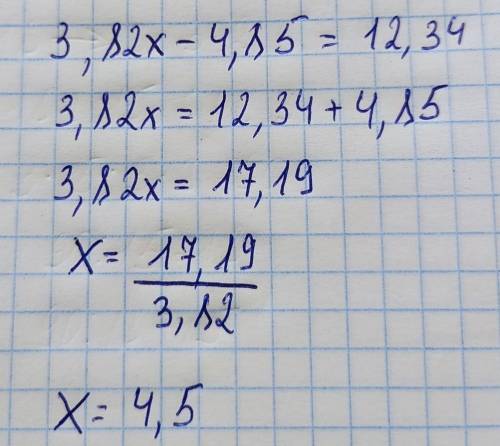 3,82x - 4,85 = 12,34
3,82x = 12,34 + 4,85
3,82x = 17,19
x = 17,19
3,82
x = 4,5